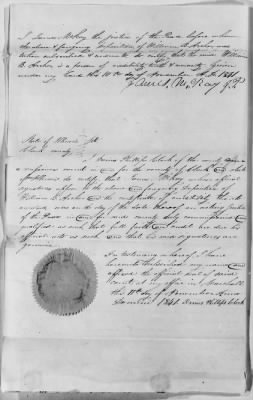 I James McKay the justice of the Peace before whom
the above & foregoing Deposition of William B. Archer was
taken subscribed & sworn to do certify that the said William
B. Archer is a person of credibility truth & veracity Given
under my hand this 10th day of November A.D. 1841
James McKay J.P.
State of Illinois
Clark county
I Darius Phillips clerk of the county
commissioners court in and for the county of Clark and state
aforesaid do certify that James McKay whose official
signature appears to the above and foregoing Deposition of
William B Archer and the certificate of credibility thereto
annexed was at the day of the date thereof an acting Justice
of the Peace in and for said county duly commissioned and
qualified as such that full faith and credit are due his
official acts as such and that his said signatures are
genuine
In testimony whereof I have
hereunto subscribed my name and
affixed the official seal of said
court at my office in Marshall
this day of November Anno
Domini 1841. Darius Phillips clerk